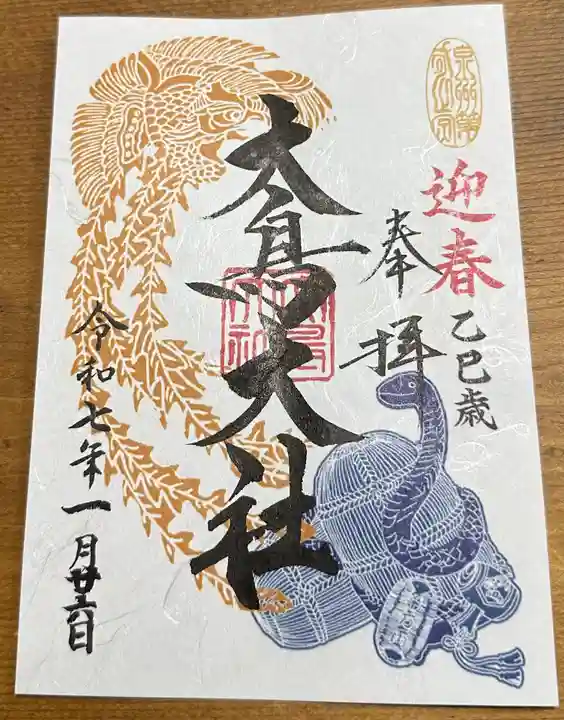 迎春
乙巳歳
奉拝
大鳥大社
令和七年一月廿六日